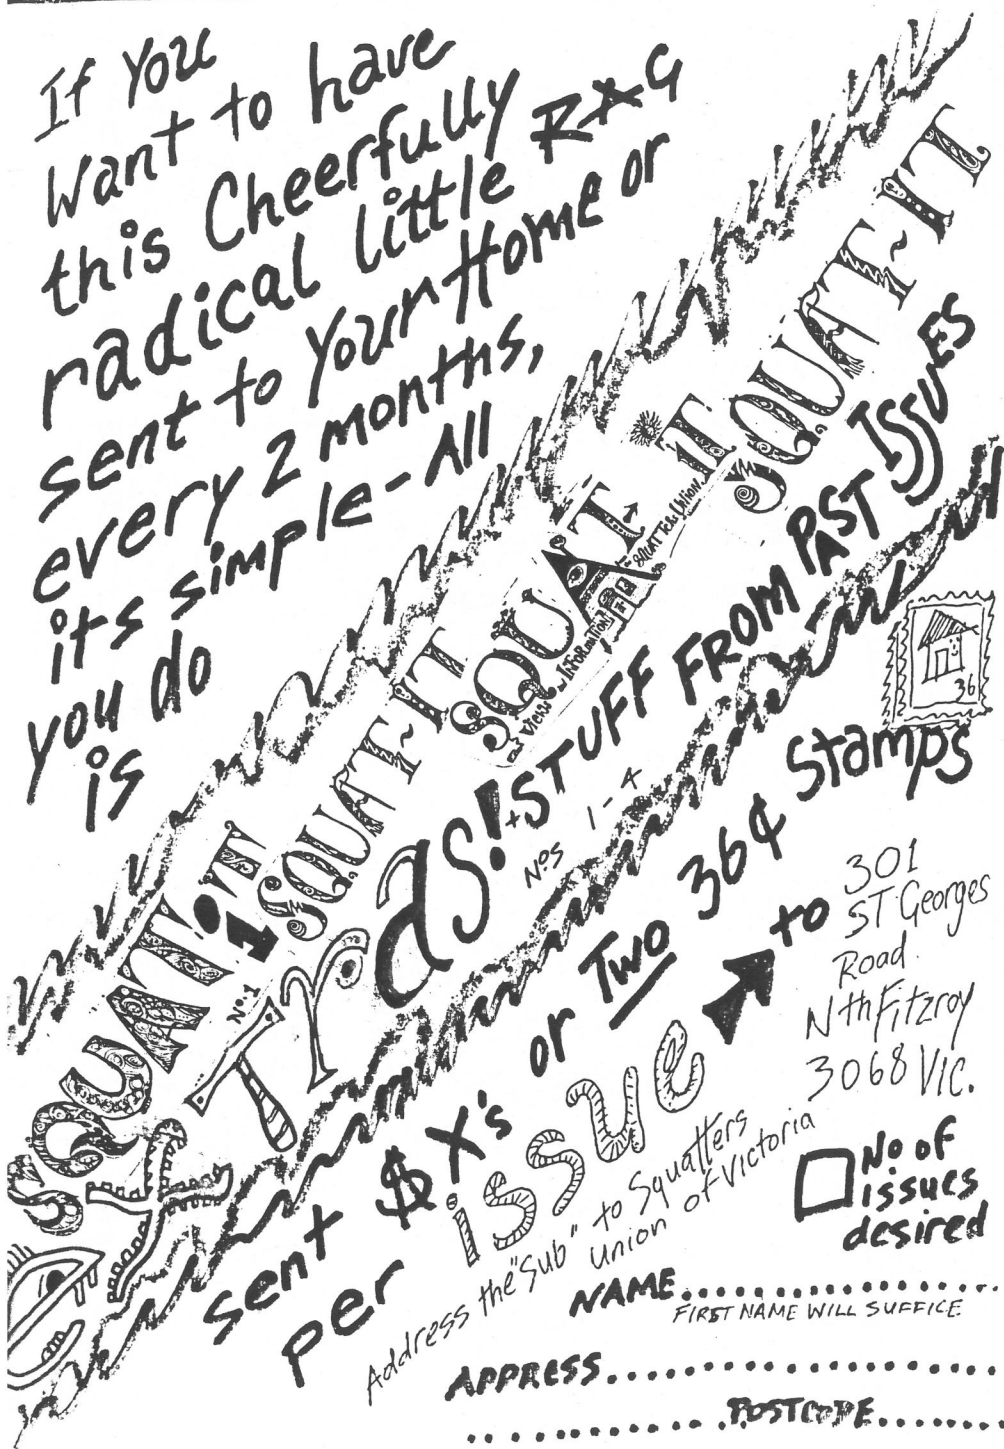 If You
Want to have
this Cheerfully
radical little RAG
sent to Your Home or
every 2 months,
it's simple - All
you do
is
SQUAT IT!
No. 1
SQUAT~IT
SQUAT IT
Views Information SQUATTers Union
SQUAT~IT
Tr as!
+STUFF FROM PAST ISSUES
Nos 1-4
36
sent $X's or Two 36¢ Stamps
per issue to
301
ST Georges
Road
Nth Fitzroy
3068 VIC.
Address the "Sub" to Squatters
Union of Victoria
No of
issues
desired
NAME....................
FIRST NAME WILL SUFFICE
ADDRESS....................
....................POSTCODE........